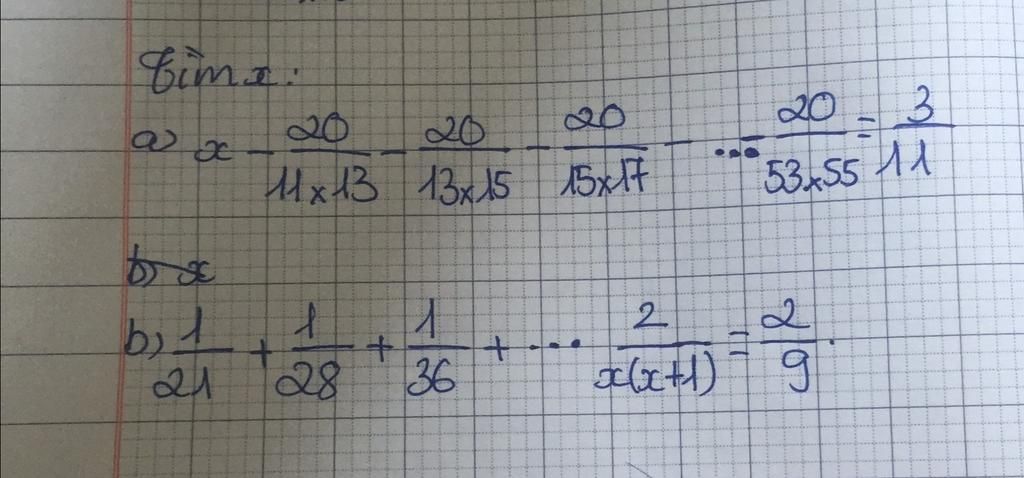 Tìm x:
a) x - 20/11x13 - 20/13x15 - 20/15x17 - ... - 20/53x55 = 3/11
b) x
b) 1/21 + 1/28 + 1/36 + ... 2/x(x+1) = 2/9.